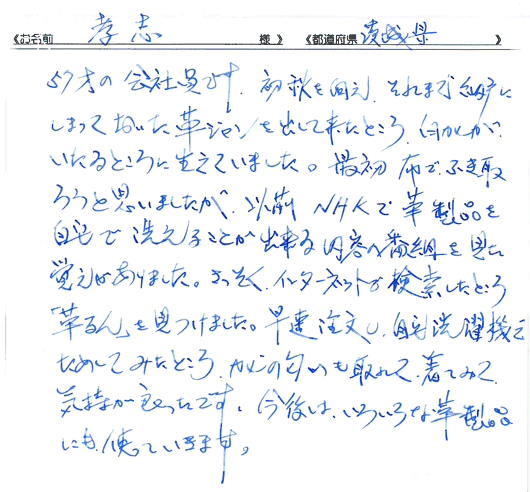 《お名前 孝志 様》 《都道府県 茨城県 》
57才の会社員です。初秋を向え、それまで納戸に
しまっておいた革ジャンを出して来たところ、白カビが
いたるところに生えていました。最初布でふき取
ろうと思いましたが、以前NHKで革製品を
自宅で洗えることが出来る内容の番組を見た
覚えがありました。さっそく、インターネットで検索したところ
「革るん」を見つけました。早速注文し、自宅洗濯機で
ためしてみたところ、カビの匂いも取れて、着てみて
気持が良かったです。今後は、いろいろな革製品
にも使っていきます。